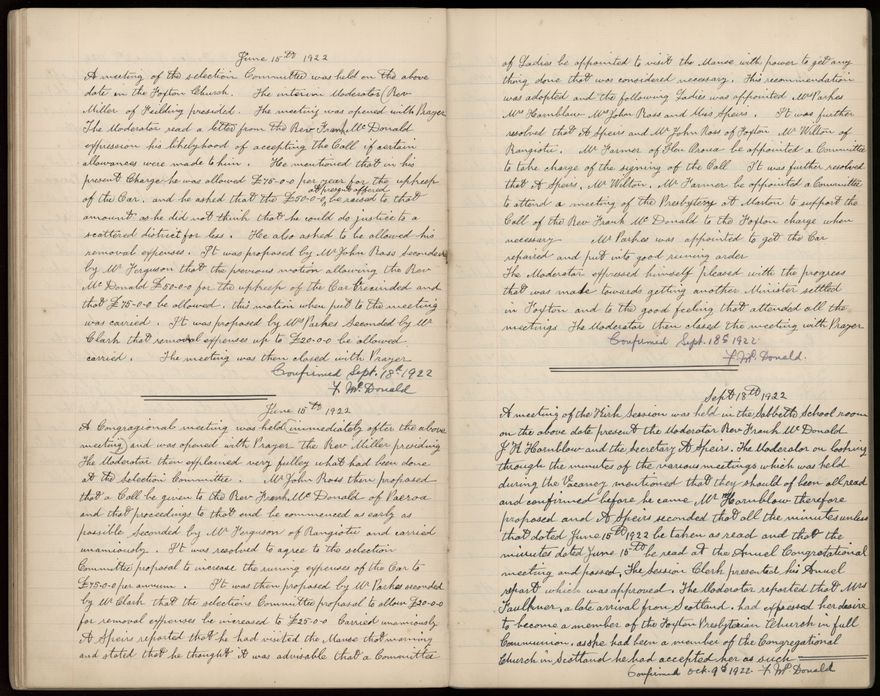 June 15th 1922
A meeting of the selection Committee was held on the above
date in the Foxton Church. The interim Moderator (Rev
Miller of Feilding presided. The meeting was opened with Prayer
The Moderator read a letter from the Rev Frank Mc Donald
expression his likelyhood of accepting the Call if certain
allowances were made to him. He mentioned that in his
present Charge he was allowed £75-0-0 per year for the upkeep
of the Car. and he asked that the £50-0-0, at present offered be raised to that
amount as he did not think that he could do justice to a
scattered district for less. He also asked to be allowed his
removal expenses. It was proposed by Mr John Ross Seconded
by Mr Ferguson that the previous motion allowing the Rev
Mc Donald £50-0-0 for the upkeep of the Car be recinded and
that £75-0-0 be allowed. this motion when put to the meeting
was carried. It was proposed by Mrs Parkes Seconded by Mr
Clark that removal expenses up to £20-0-0 be allowed
carried. The meeting was then closed with Prayer
Confirmed Sept. 18th 1922
F. McDonald
June 15th 1922
A Congragional meeting was held immediately after the above
meeting) and was opened with Prayer the Rev Miller presiding
The Moderator then explained very fulley what had been done
at the Selection Committee. Mr John Ross then proposed
that a Call be given to the Rev Frank Mc Donald of Paeroa
and that proceedings to that end be commenced as early as
possible Seconded by Mr Ferguson of Rangiotu and carried
unamiously. It was resolved to agree to the selection
Committee proposal to increase the runing expenses of the Car to
£75-0-0 per annum. It was then proposed by Mr Parkes seconded
by Mr Clark that the selections Committee proposal to allow £20-0-0
for removal expenses be increased to £25-0-0 Carried unamiously
A Speirs reported that he had visited the Manse that morning
and stated that he thought it was advisable that a Committee
of Ladies be appointed to visit the Manse with power to get any
thing done that was considered necessary. This recommendation
was adopted and the following Ladies was appointed Mrs Parkes
Mrs Hornblow Mrs John Ross and Miss Speirs. It was further
resolved that A Speirs and Mr John Ross of Foxton Mr Wilton of
Rangiotu. Mr Farmer of Glen Oroua be appointed a Committee
to take charge of the signing of the Call It was further resolved
that A Speirs, Mr Wilton, Mr Farmer be appointed a Committee
to attend a meeting of the Presbytery at Marton to support the
Call of the Rev Frank Mc Donald to the Foxton charge when
necessary Mr Parkes was appointed to get the Car
repaired and put into good runing order
The Moderator expressed himself pleased with the progress
that was made towards getting another Minister settled
in Foxton and to the good feeling that attended all the
meetings The Moderator then closed the meeting with Prayer
Confirmed Sept. 18th 1922
F. McDonald.
Sept 18th 1922
A meeting of the Kirk Session was held in the Sabbath School room
on the above date present the Moderator Rev Frank Mc Donald
J H Hornblow and the Secretary A Speirs. The Moderator on looking
through the minutes of the various meetings which was held
during the Vacancy mentioned that they should of been all read
and confirmed before he came Mr Hornblow therefore
proposed and A Speirs seconded that all the minutes unless
that dated June 15th 1922 be taken as read and that the
minutes dated June 15th be read at the Annuel Congrotational
meeting and passed, The Session Clerk presented his Annuel
report which was approved. The Moderator reported that Mrs
Faulkner, a late arrival from Scotland. had expessed her desire
to become a member of the Foxton Presbytesian Church in full
Communion. as she had been a member of the Congregational
Church in Scotland he had accepted her as such
Confirmed Oct. 9th 1922. F. McDonald